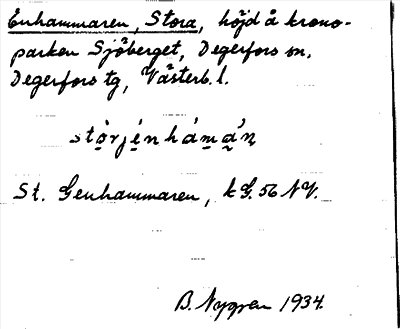 Enhammaren, Stora, höjd å krono-
parken Sjöberget, Degerfors sn,
Degerfors tg, Västerb. l.
stòrjénhámán
St. Genhammaren, kG. 56 NV.
B. Nygren 1934.